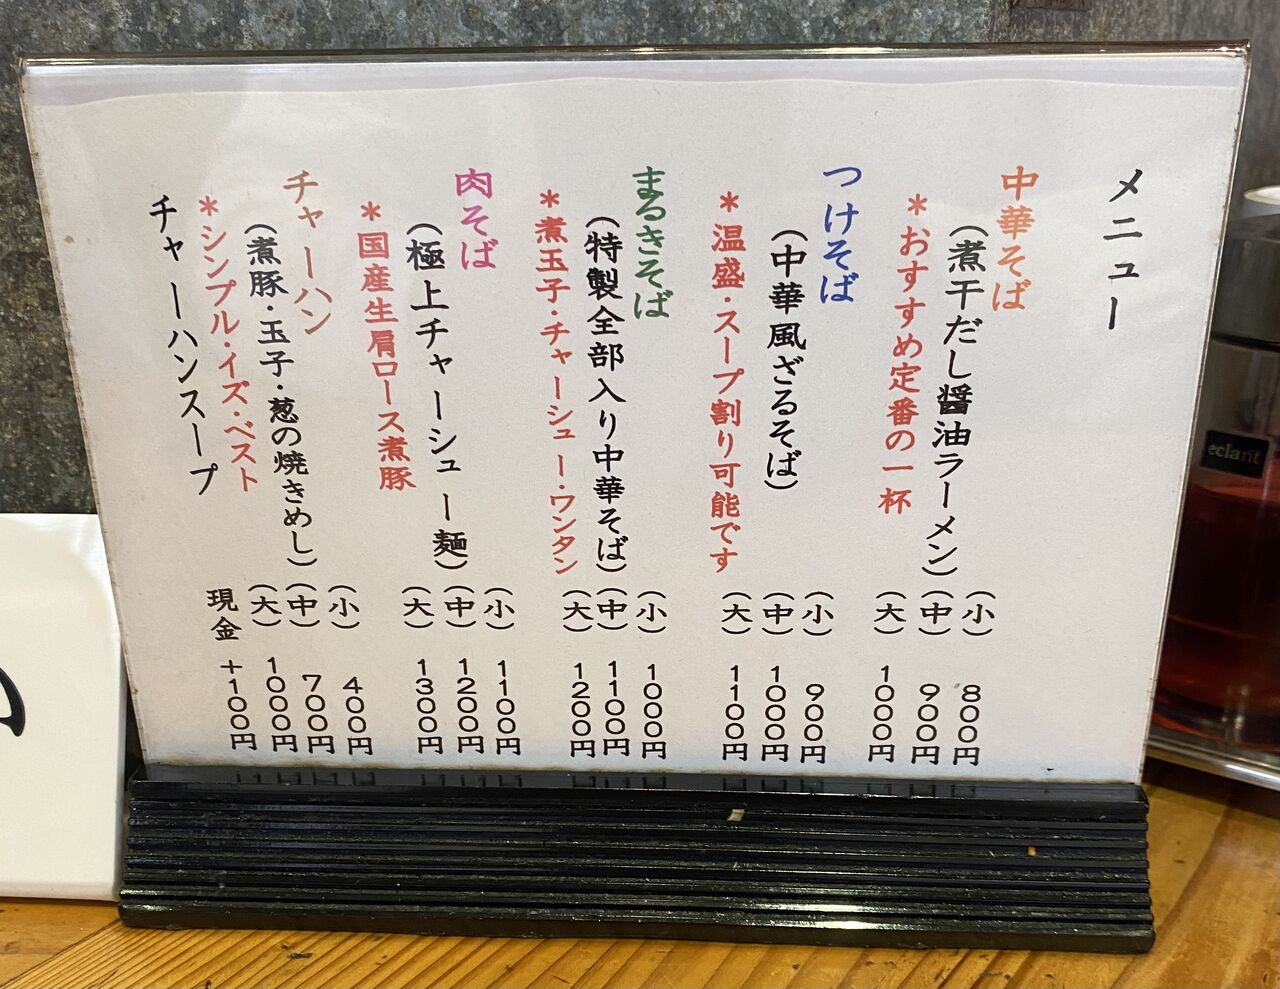 メニュー
中華そば
（煮干だし醤油ラーメン）（小）　８００円
（中）　９００円
＊おすすめ定番の一杯　（大）　１０００円
つけそば
（中華風ざるそば）　（小）　９００円
（中）　１０００円
＊温盛・スープ割り可能です　（大）　１１００円
まるきそば　（小）　１０００円
（特製全部入り中華そば）（中）　１１００円
＊煮玉子・チャーシュー・ワンタン　（大）　１２００円
肉そば　（小）　１１００円
（極上チャーシュー麺）（中）　１２００円
＊国産生肩ロース煮豚　（大）　１３００円
チャーハン　（小）　４００円
（煮豚・玉子・葱の焼きめし）（中）　７００円
＊シンプル・イズ・ベスト　（大）　１０００円
チャーハンスープ　現金　＋１００円
eclant